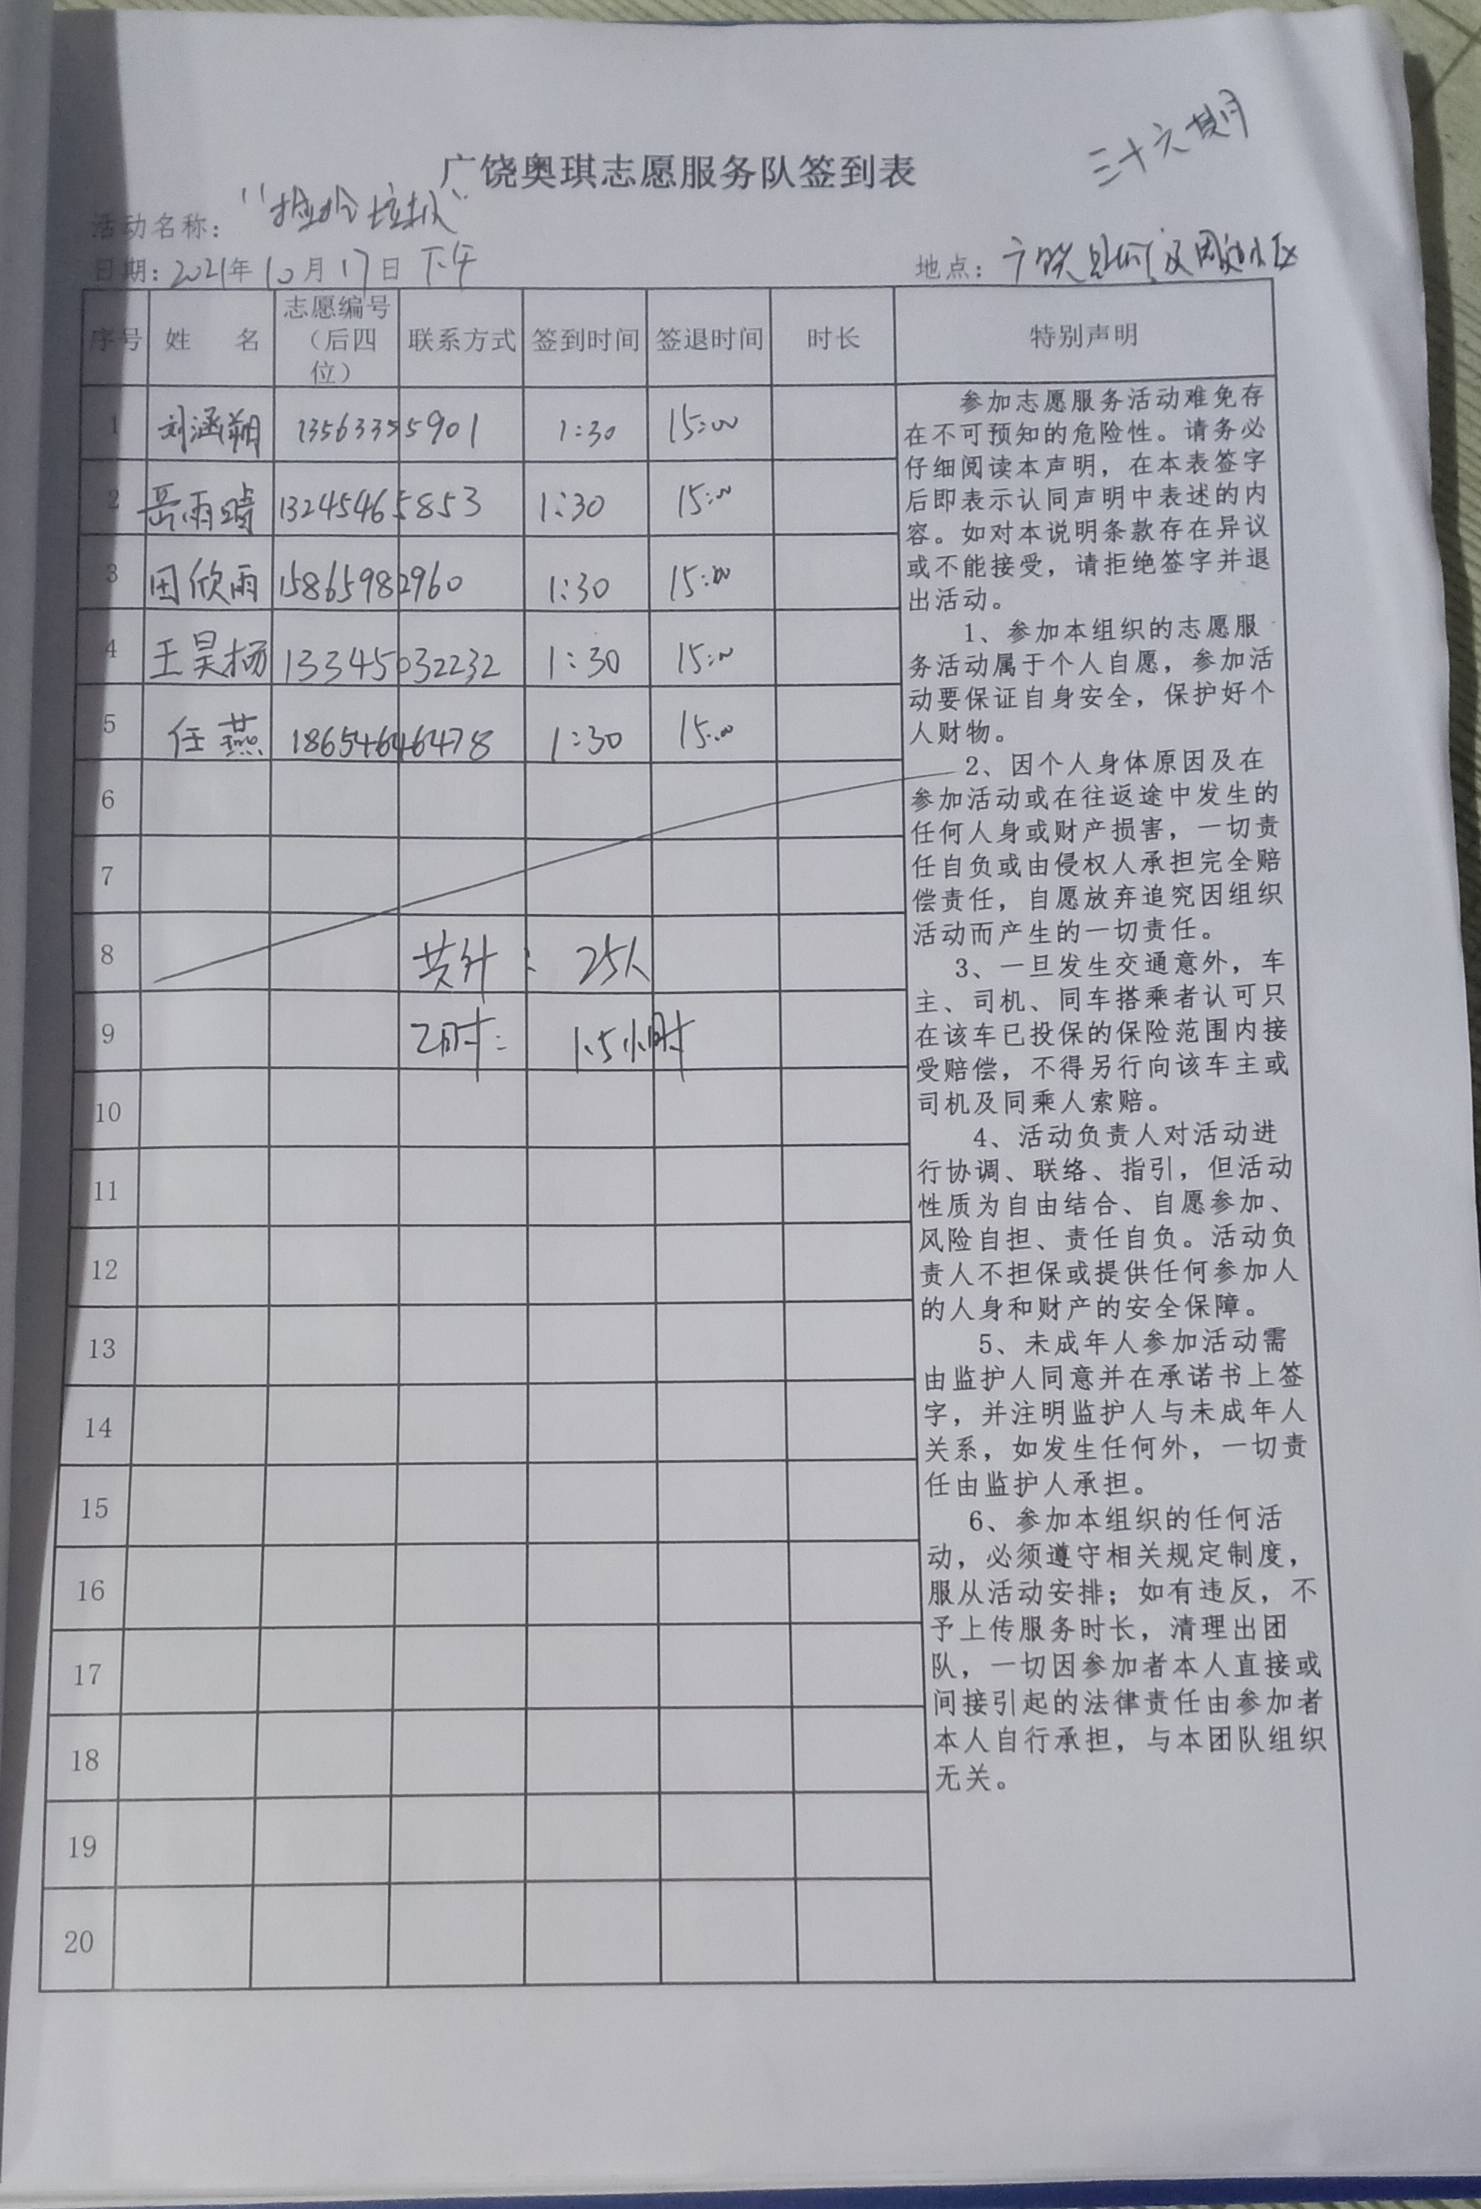 三十六期
广饶奥琪志愿服务队签到表
活动名称：“捡拾垃圾”
日期：2021年10月17日 下午 地点：广饶县府及周边小区
序号 姓 名 志愿编号（后四位） 联系方式 签到时间 签退时间 时长 特别声明
1 刘涵朔 13563355901 1:30 15:00
2 岳雨晴 13245465853 1:30 15:00
3 田欣雨 15865982960 1:30 15:00
4 王昊扬 13345032232 1:30 15:00
5 任燕 18654646478 1:30 15:00
6
7
8 共计： 25人
9 工时： 1.5小时
10
11
12
13
14
15
16
17
18
19
20
参加志愿服务活动难免存
在不可预知的危险性。请务必
仔细阅读本声明，在本表签字
后即表示认同声明中表述的内
容。如对本说明条款存在异议
或不能接受，请拒绝签字并退
出活动。
1、参加本组织的志愿服
务活动属于个人自愿，参加活
动要保证自身安全，保护好个
人财物。
2、因个人身体原因及在
参加活动或在往返途中发生的
任何人身或财产损害，一切责
任自负或由侵权人承担完全赔
偿责任，自愿放弃追究因组织
活动而产生的一切责任。
3、一旦发生交通意外，车
主、司机、同车搭乘者认可只
在该车已投保的保险范围内接
受赔偿，不得另行向该车主或
司机及同乘人索赔。
4、活动负责人对活动进
行协调、联络、指引，但活动
性质为自由结合、自愿参加、
风险自担、责任自负。活动负
责人不担保或提供任何参加人
的人身和财产的安全保障。
5、未成年人参加活动需
由监护人同意并在承诺书上签
字，并注明监护人与未成年人
关系，如发生任何外，一切责
任由监护人承担。
6、参加本组织的任何活
动，必须遵守相关规定制度，
服从活动安排；如有违反，不
予上传服务时长，清理出团
队，一切因参加者本人直接或
间接引起的法律责任由参加者
本人自行承担，与本团队组织
无关。